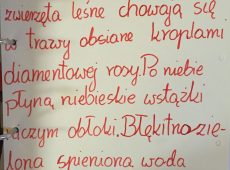 zwierzęta leśne chowają się
w trawy obsiane kroplami
diamentowej rosy. Po niebie
płyną niebieskie wstążki
niczym obłoki. Błękitnozie-
lona spieniona woda